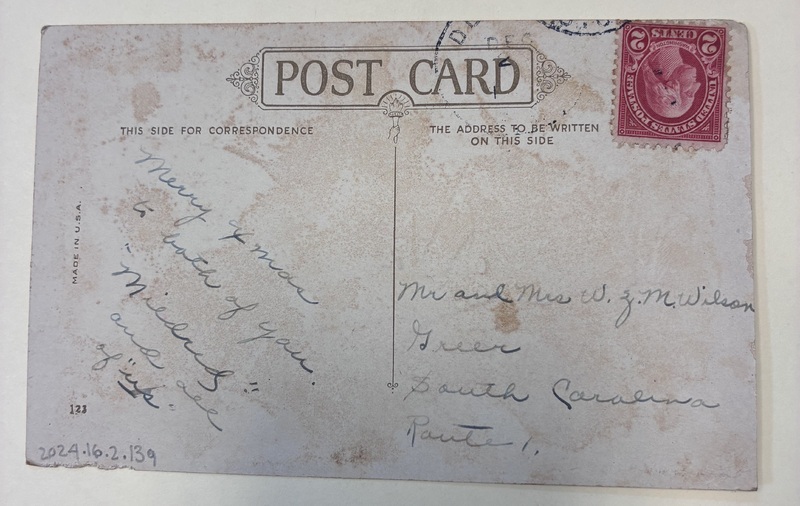 POST CARD
THIS SIDE FOR CORRESPONDENCE
THE ADDRESS TO BE WRITTEN
ON THIS SIDE
UNITED STATES POSTAGE
2 CENTS 2
DEC
MADE IN U.S.A.
Merry Xmas
to both of you.
"Mildred"
and all
of "us"
Mr and Mrs W. Z. McWilson
Greer
South Carolina
Route 1.
123
2024.16.2.139